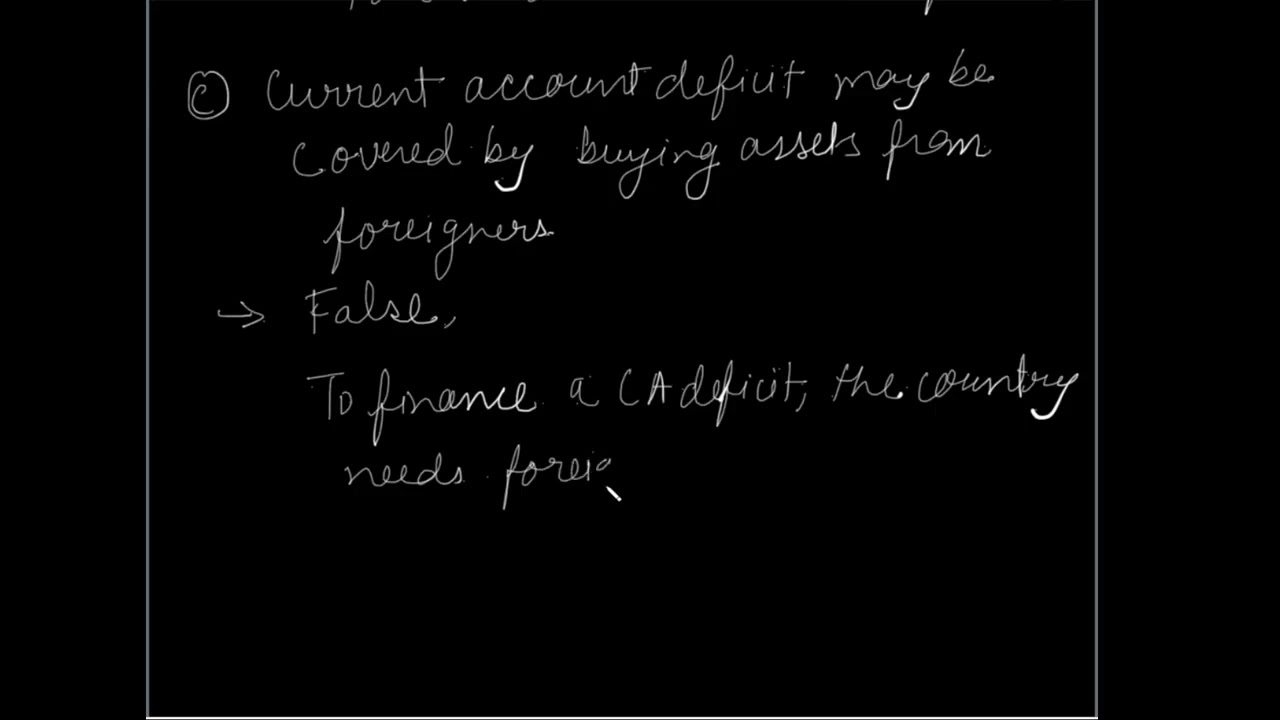 (C) Current account deficit may be
covered by buying assets from
foreigners.
→ False,
To finance a CA deficit, the country
needs foreig